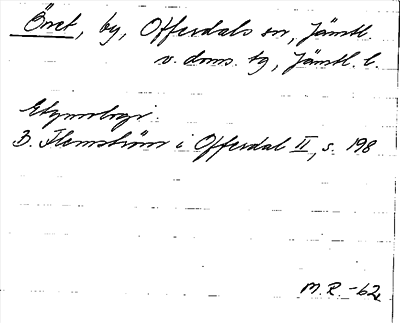 Öret, by, Offerdals sn, Jämtl.
v. doms. tg, Jämtl. l.
Etymologi:
B. Flemström i Offerdal II, s. 198
M.R. -62